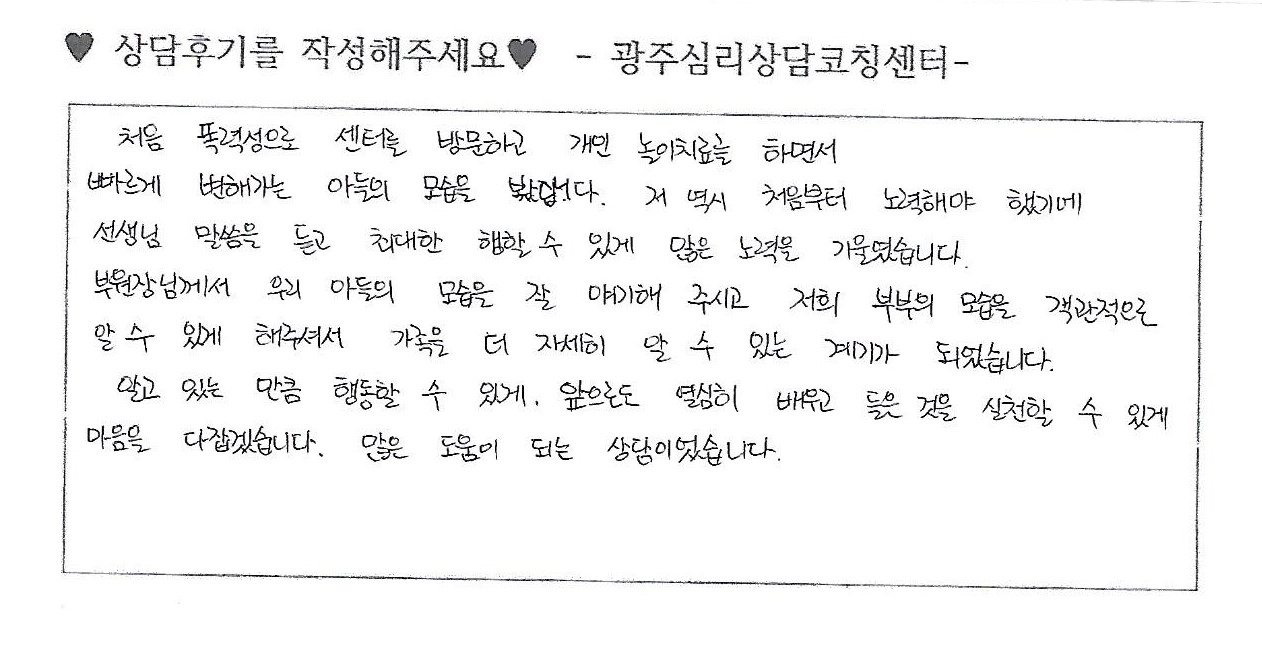 ♥ 상담후기를 작성해주세요♥ - 광주심리상담코칭센터-
처음 폭력성으로 센터를 방문하고 개인 놀이치료를 하면서
빠르게 변해가는 아들의 모습을 봤습니다. 저 역시 처음부터 노력해야 했기에
선생님 말씀을 듣고 최대한 행할 수 있게 많은 노력을 기울였습니다.
부원장님께서 우리 아들의 모습을 잘 얘기해 주시고 저희 부부의 모습을 객관적으로
알 수 있게 해주셔서 가족을 더 자세히 알 수 있는 계기가 되었습니다.
알고 있는 만큼 행동할 수 있게. 앞으로도 열심히 배우고 들은 것을 실천할 수 있게
마음을 다잡겠습니다. 많은 도움이 되는 상담이었습니다.